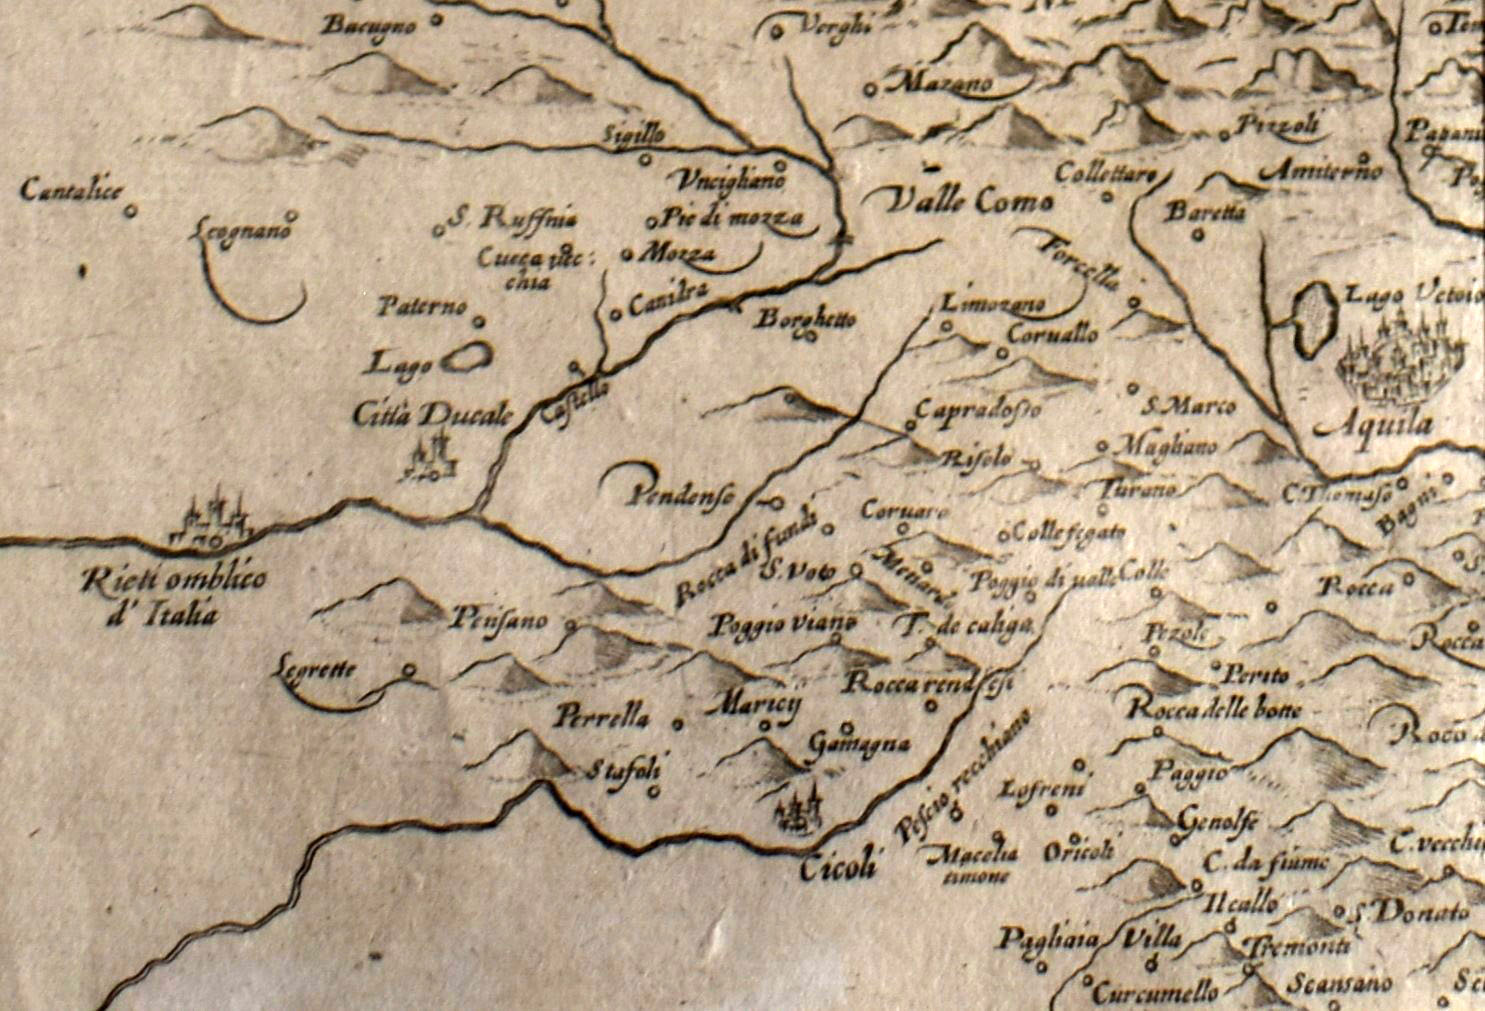 Bacugno
Verghi
Mazano
Sigillo
Pizzoli
Cantalice
Vncigliano
Collettaro
Amiterno
Legnano
S. Ruffnia
Pie di mozza
Valle Como
Baretta
Cueca uec:
chia
Mozza
Forcella
Paterno
Canitra
Borghetto
Limozano
Lago Vetoio
Coruallo
Lago
Città Ducale
Castello
Capradosso
S. Marco
Aquila
Risolo
Magliano
Pendense
Turano
C. Thomaso
Bagni
Coruaro
Rocca di fundi
Collefegato
Rieti omblico
d' Italia
S. Voto
Menardo
Poggio di ualle
Colle
Rocca
Pensano
Poggio viano
T. de caliga
Pezole
Rocca
Legrette
Rocca rendesi
Perito
Perrella
Maricij
Rocca delle botte
Gamagna
Pescio rocchiano
Stafoli
Lofreni
Paggio
Genolfe
Cicoli
Macchia
timone
Oricoli
C. da fiume
C. vecchi
Il callo
S. Donato
Pagliaia
Villa
Tremonti
Curcumello
Scansano